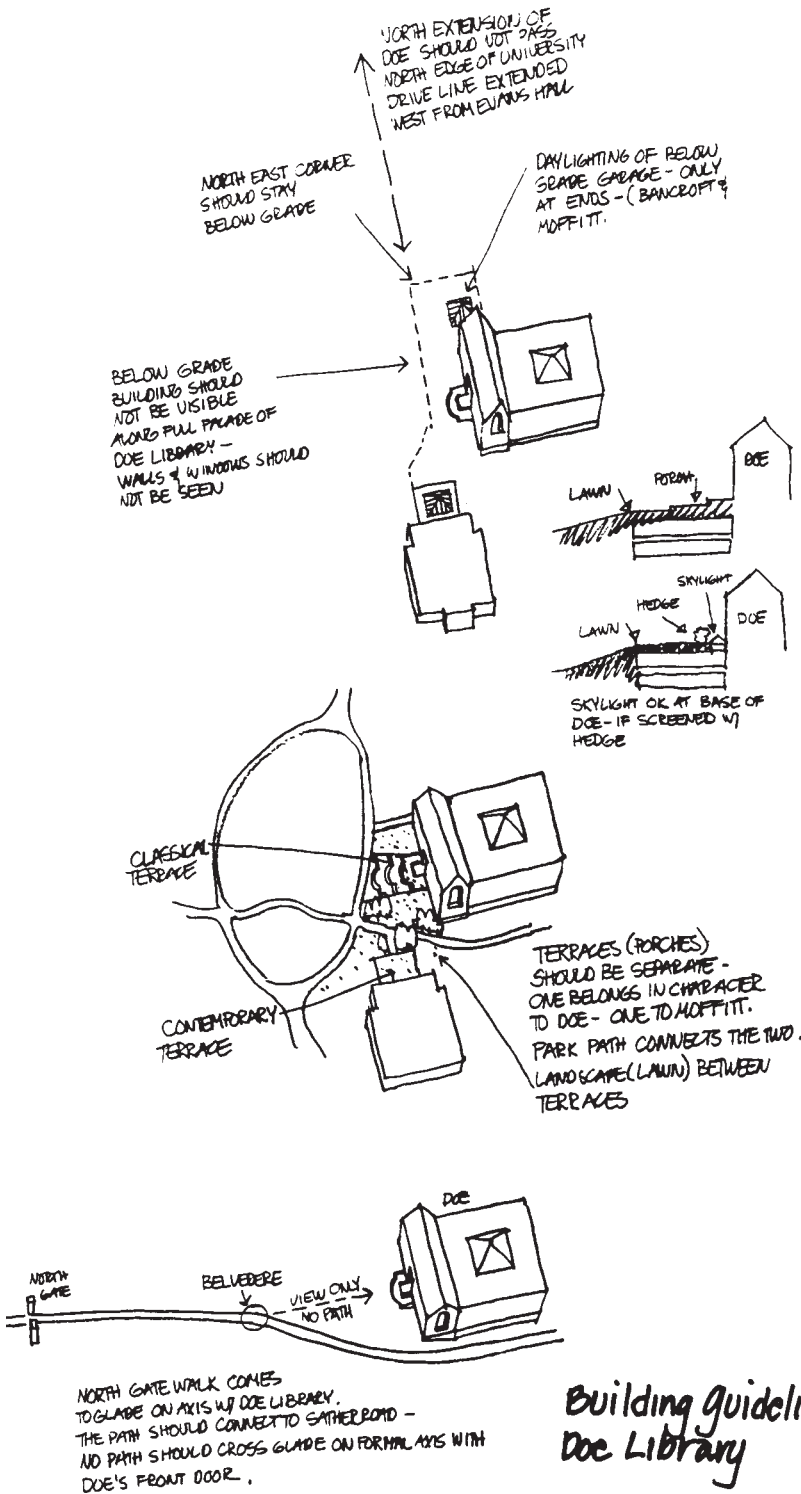 NORTH EXTENSION OF
DOE SHOULD NOT PASS
NORTH EDGE OF UNIVERSITY
DRIVE LINE EXTENDED
WEST FROM EVANS HALL
NORTH EAST CORNER
SHOULD STAY
BELOW GRADE
DAYLIGHTING OF BELOW
GRADE GARAGE - ONLY
AT ENDS - (BANCROFT &
MOFFITT.
BELOW GRADE
BUILDING SHOULD
NOT BE VISIBLE
ALONG FULL FACADE OF
DOE LIBRARY -
WALLS & WINDOWS SHOULD
NOT BE SEEN
DOE
PORCH
LAWN
SKYLIGHT
HEDGE
DOE
LAWN
SKYLIGHT OK AT BASE OF
DOE - IF SCREENED W/
HEDGE
CLASSICAL
TERRACE
CONTEMPORARY
TERRACE
TERRACES (PORCHES)
SHOULD BE SEPARATE -
ONE BELONGS IN CHARACTER
TO DOE - ONE TO MOFFITT.
PARK PATH CONNECTS THE TWO.
LANDSCAPE (LAWN) BETWEEN
TERRACES
DOE
NORTH
GATE
BELVEDERE
VIEW ONLY
NO PATH
NORTH GATE WALK COMES
TO GLADE ON AXIS W/ DOE LIBRARY.
THE PATH SHOULD CONNECT TO SATHER ROAD -
NO PATH SHOULD CROSS GLADE ON FORMAL AXIS WITH
DOE'S FRONT DOOR.
Building guideli
Doe Library